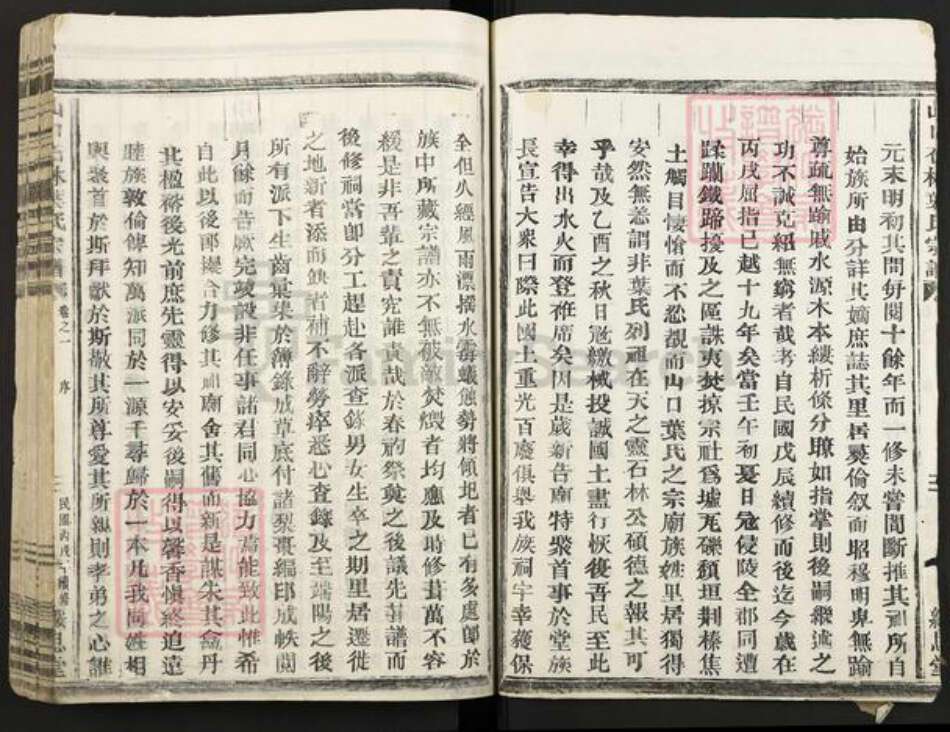 元末明初其間每閱十餘年而一修未嘗間斷推其祖所自
始族所由分詳其嫡庶誌其里居彞倫叙而昭穆明卑無踰
尊疏無踰戚水源木本縷析條分瞭如指掌則後嗣纘述之
功不誠克紹無窮者哉考自民國戊辰續修而後迄今歲在
丙戌屈指已越十九年矣當壬午初夏日寇侵陵全郡同遭
蹂躪鐵蹄擾及之區誅夷焚掠宗社爲墟瓦礫頹垣荆榛焦
土觸目悽愴而不忍覩而山口葉氏之宗廟族姓里居獨得
安然無恙謂非葉氏列祖在天之靈石林公碩德之報其可
乎哉及乙酉之秋日寇繳械投誠國土盡行恢復吾民至此
幸得出水火而登袵席矣因是歲新吿廟特聚首事於堂族
長宣告大衆曰際此國土重光百廢俱興我族祠宇幸獲保
全但久經風雨漂搖水霉蟻蝕勢將傾圯者已有多處卽於
族中所藏宗譜亦不無被敵焚燬者均應及時修葺萬不容
緩是非吾輩之責究誰責哉於春祠祭奠之後議先葺譜而
後修祠當卽分工趕赴各派查錄男女生卒之期里居遷徙
之地新者添而缺者補不辭勞瘁悉心查錄及至端陽之後
所有派下生齒彙集於簿錄成草底付諸梨棗編印成帙閱
月餘而告厥完竣設非任事諸君同心協力焉能致此惟希
自此以後再接合力修其祠廟舍其舊而新是謀朱其盒丹
其楹裕後光前庶先靈得以安妥後嗣得以馨香愼終追遠
睦族敦倫俾知萬派同於一源千尋歸於一本凡我同姓相
與裝首於斯拜獻於斯敬其所尊愛其所親則孝弟之心誰
卷之一
序
三
民國丙戌